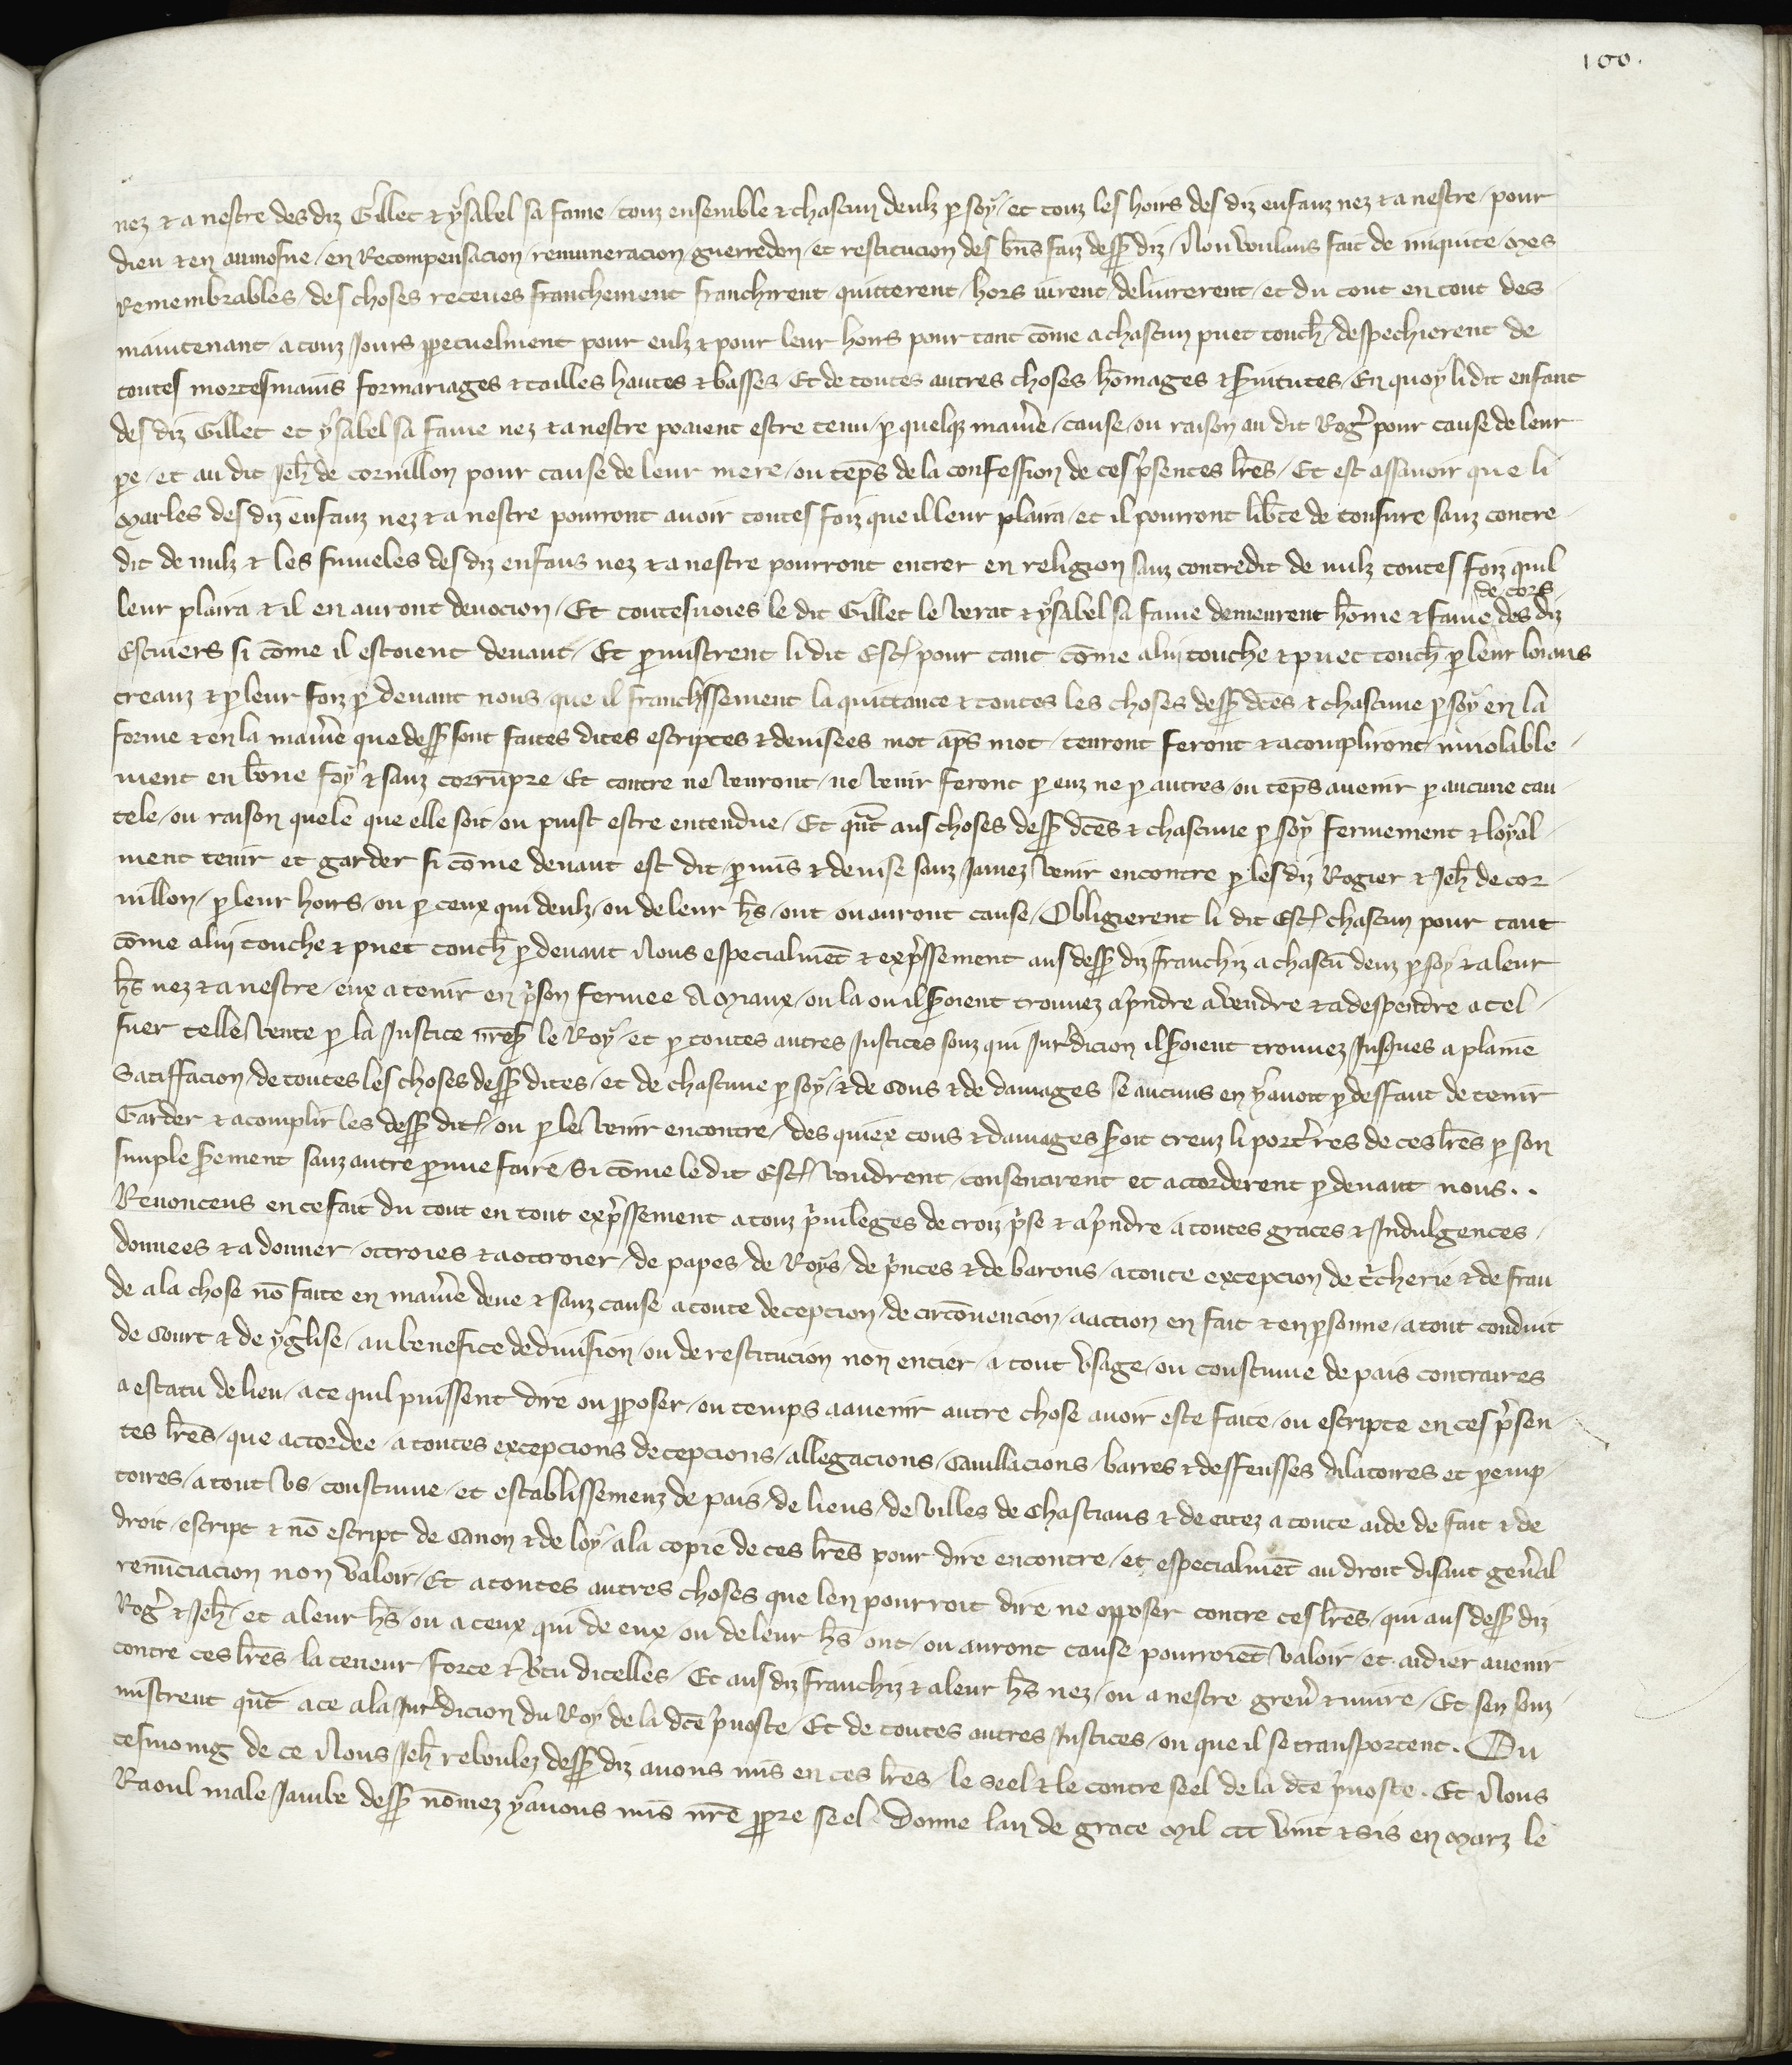 100.
nez & a nestre des diz Gillet & ysabel sa fame / touz ensemble & chascun deulz p soy / et touz les hoirs des diz enfanz nez & a nestre / pour
dieu & en aumosne / en Recompensacion / remuneracion / guerredon / et restitucion des bñs faiz dess9 diz / Non voulans fait de iniquite / Mes
Remembrables / des choses receues franchement franchirent quitterent / hors mirent / deliurerent / et du tout en tout des
maintenant / a touz Jours ppetuelment pour eulz & pour leur hoirs pour tant cõme a chascun puet touch̃ / despechierent de
toutes mortesmains formariages & tailles hautes & basses / Et de toutes autres choses hõmages & s̃uitutes / En quoy li dit enfant
des diz Gillet et ysabel sa fame nez & a nestre pouient estre tenu / p quelq3 maniẽe / cause / ou raison au dit Rog̃ pour cause de leur
pe / et au dit Jeh̃ de cornillon pour cause de leur mere / ou tẽps de la confession de ces p̃sentes lr̃es / Et est assauoir que li
Marles des diz enfanz nez & a nestre pourront auoir toutes foiz que il leur plaira / et il pourront lib̃te de tonsure sanz contre
dit de nulz & les fumeles des diz enfans nez & a nestre pourront entrer en religion sanz contredit de nulz toutes foiz quil
leur plaira & il en auront deuocion / Et toutesuoies le dit Gillet le verat & ysabel sa fame demeurent hõme & fame de cors des diz
Escuiers si cõme il estoient deuant / Et pmistrent li dit Esc̃ / pour tant cõme a lui touche & puet touch̃ p leur loiaus
creanz & p leur foiz p deuant nous / que il franchissement la quittance & toutes les choses dess9 dc̃es & chascune p soy en la
forme & en la maniẽe que dess9 sont faites dites escriptes & deuisees mot ap̃s mot / tenront feront & acompliront inuiolable
ment en bõne foy & sanz corrũpre / Et contre ne venront / ne venir feront p euz ne p autres / ou tẽps auenir p aucune cau
tele / ou raison quele que elle soit / ou puist estre entendue / Et qñt aus choses dess9 dc̃es & chascune p soy fermement & loyal
ment tenir et garder si cõme deuant est dit / pmis & deuise sanz Jamez venir encontre p les diz Rogier & Jeh̃ de cor
nillon / p leur hoirs / ou p ceux qui deulz / ou de leur h̃s / ont ou auront cause / Obligierent li dit Esc̃ chascun pour tant
cõme a lui touche & puet touch̃ p deuant Nous especialmẽt & exp̃ssement aus dess9 diz franchiz a chascũ deuz p soy & a leur
h̃s nez & a nestre / eux a tenir en p̃son fermee A Miaux / ou la ou il s̃oient trouuez a p̃ndre a vendre & a despendre a tel
fuer telle vente p la Justice nr̃es9 le Roy / et p toutes autres Justices souz qui Jurˀdicion il s̃oient trouuez Jusques a plaine
Satiffacion / de toutes les choses dess9 dites / et de chascune p soy / & de cous & de damages se aucuns en y auoit p deffaut de tenir
Garder & acomplir les dess9 dit̃ / ou p le venir encontre / des quiex cous & damages s̃oit creuz li port̃res de ces lr̃es p son
simple s̃ement sanz autre pruue faire / Si cõme le dit Esc̃ voudrent / consentirent et accorderent p deuant nous..
Renoncens en ce fait du tout en tout exp̃ssement a touz p̃uileges de croiz p̃se & a p̃ndre a toutes graces & Indulgences /
donnees & a donner / ottroies & a ottroier / de papes / de Roys / de p̃nces & de barons / a toute excepcion de t̃cherie & de frau
de a la chose nõ faite en maniẽe deue & sanz cause a toute decepcion / de circõuencion / a action en fait & en psonne / a tout conduit
de Court & de yglise / au benefice de diuision / ou de restitucion non entier / a tout vsage / ou coustume de pais contraires
a estatu de lieu / a ce quil puissent dire ou pposer / ou temps a auenir autre chose auoir este faite / ou escripte en ces p̃sen
tes lr̃es / que accordee / a toutes excepcions decepcions / allegacions / Cauillacions / barres & deffensses dilatoires et pemp
toires / a tout vs / coustume / et establissemenz de pais / de lieus / de villes de Chastiaus & de citez a toute aide de fait & de
droit / escript & nõ escript de Canon & de loy / a la copie de ces lr̃es pour dire encontre / et especialmẽt au droit disant geñal
renũciacion non valoir / Et a toutes autres choses que len pourroit dire ne opposer contre ces lr̃es / qui aus dess9 diz
Rog̃ & Jeh̃ / et a leur h̃s / ou a ceux qui de eux / ou de leur h̃s ont / ou auront cause pourroiẽt valoir / et aidier auenir
contre ces lr̃es / la teneur / force & ṽtu dicelles / Et aus diz franchiz & a leur h̃s nez / ou a nestre greũ & nuire / Et sen souz
mistrent qñt a ce a la Jurˀdicion du Roy de la dc̃e p̃uoste / Et de toutes autres Justices / ou que il se transportent. Ou
tesmoing de ce Nous Jeh̃ reboulez dess9 diz auons mis en ces lr̃es / le seel & le contre seel de la dc̃e p̃uoste. Et Nous
Raoul male Jambe dess9 nõmez y auons mis nr̃e ppre seel. Donne lan de grace Mil ccc vint & sis en Marz le